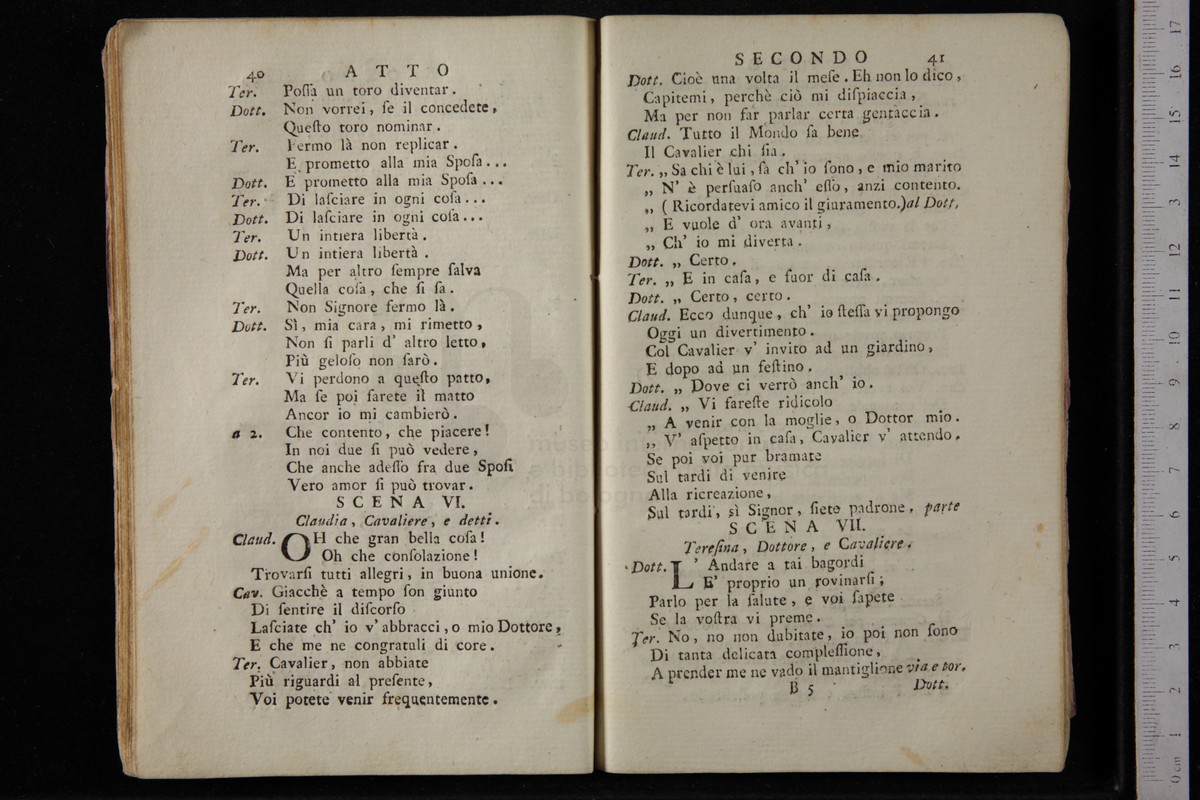 40 ATTO
Ter. Poſſa un toro diventar.
Dott. Non vorrei, ſe il concedete,
Queſto toro nominar.
Ter. Fermo là non replicar.
E prometto alla mia Spoſa...
Dott. E prometto alla mia Spoſa...
Ter. Di laſciare in ogni coſa...
Dott. Di laſciare in ogni coſa...
Ter. Un intiera libertà.
Dott. Un intiera libertà.
Ma per altro ſempre ſalva
Quella coſa, che ſi ſa.
Ter. Non Signore fermo là.
Dott. Sì, mia cara, mi rimetto,
Non ſi parli d' altro letto,
Più geloſo non farò.
Ter. Vi perdono a queſto patto,
Ma ſe poi farete il matto
Ancor io mi cambierò.
a 2. Che contento, che piacere!
In noi due ſi può vedere,
Che anche adeſſo fra due Spoſi
Vero amor ſi può trovar.
SCENA VI.
Claudia, Cavaliere, e detti.
Claud. OH che gran bella coſa!
Oh che conſolazione!
Trovarſi tutti allegri, in buona unione.
Cav. Giacchè a tempo ſon giunto
Di ſentire il diſcorſo
Laſciate ch' io v' abbracci, o mio Dottore,
E che me ne congratuli di core.
Ter. Cavalier, non abbiate
Più riguardi al preſente,
Voi potete venir frequentemente.
SECONDO 41
Dott. Cioè una volta il meſe. Eh non lo dico,
Capitemi, perchè ciò mi diſpiaccia,
Ma per non far parlar certa gentaccia.
Claud. Tutto il Mondo ſa bene
Il Cavalier chi ſia.
Ter. „ Sa chi è lui, ſa ch' io ſono, e mio marito
„ N' è perſuaſo anch' eſſo, anzi contento.
„ (Ricordatevi amico il giuramento.) al Dott.
„ E vuole d' ora avanti,
„ Ch' io mi diverta.
Dott. „ Certo.
Ter. „ E in caſa, e fuor di caſa.
Dott. „ Certo, certo.
Claud. Ecco dunque, ch' io ſteſſa vi propongo
Oggi un divertimento.
Col Cavalier v' invito ad un giardino,
E dopo ad un feſtino.
Dott. „ Dove ci verrò anch' io.
Claud. „ Vi fareſte ridicolo
„ A venir con la moglie, o Dottor mio.
„ V' aſpetto in caſa, Cavalier v' attendo.
Se poi voi pur bramate
Sul tardi di venire
Alla ricreazione,
Sul tardi, sì Signor, ſiete padrone. parte
SCENA VII.
Tereſina, Dottore, e Cavaliere.
Dott. L' Andare a tai bagordi
E' proprio un rovinarſi;
Parlo per la ſalute, e voi ſapete
Se la voſtra vi preme.
Ter. No, no non dubitate, io poi non ſono
Di tanta delicata compleſſione,
A prender me ne vado il mantiglione via e tor.
B 5 Dott.